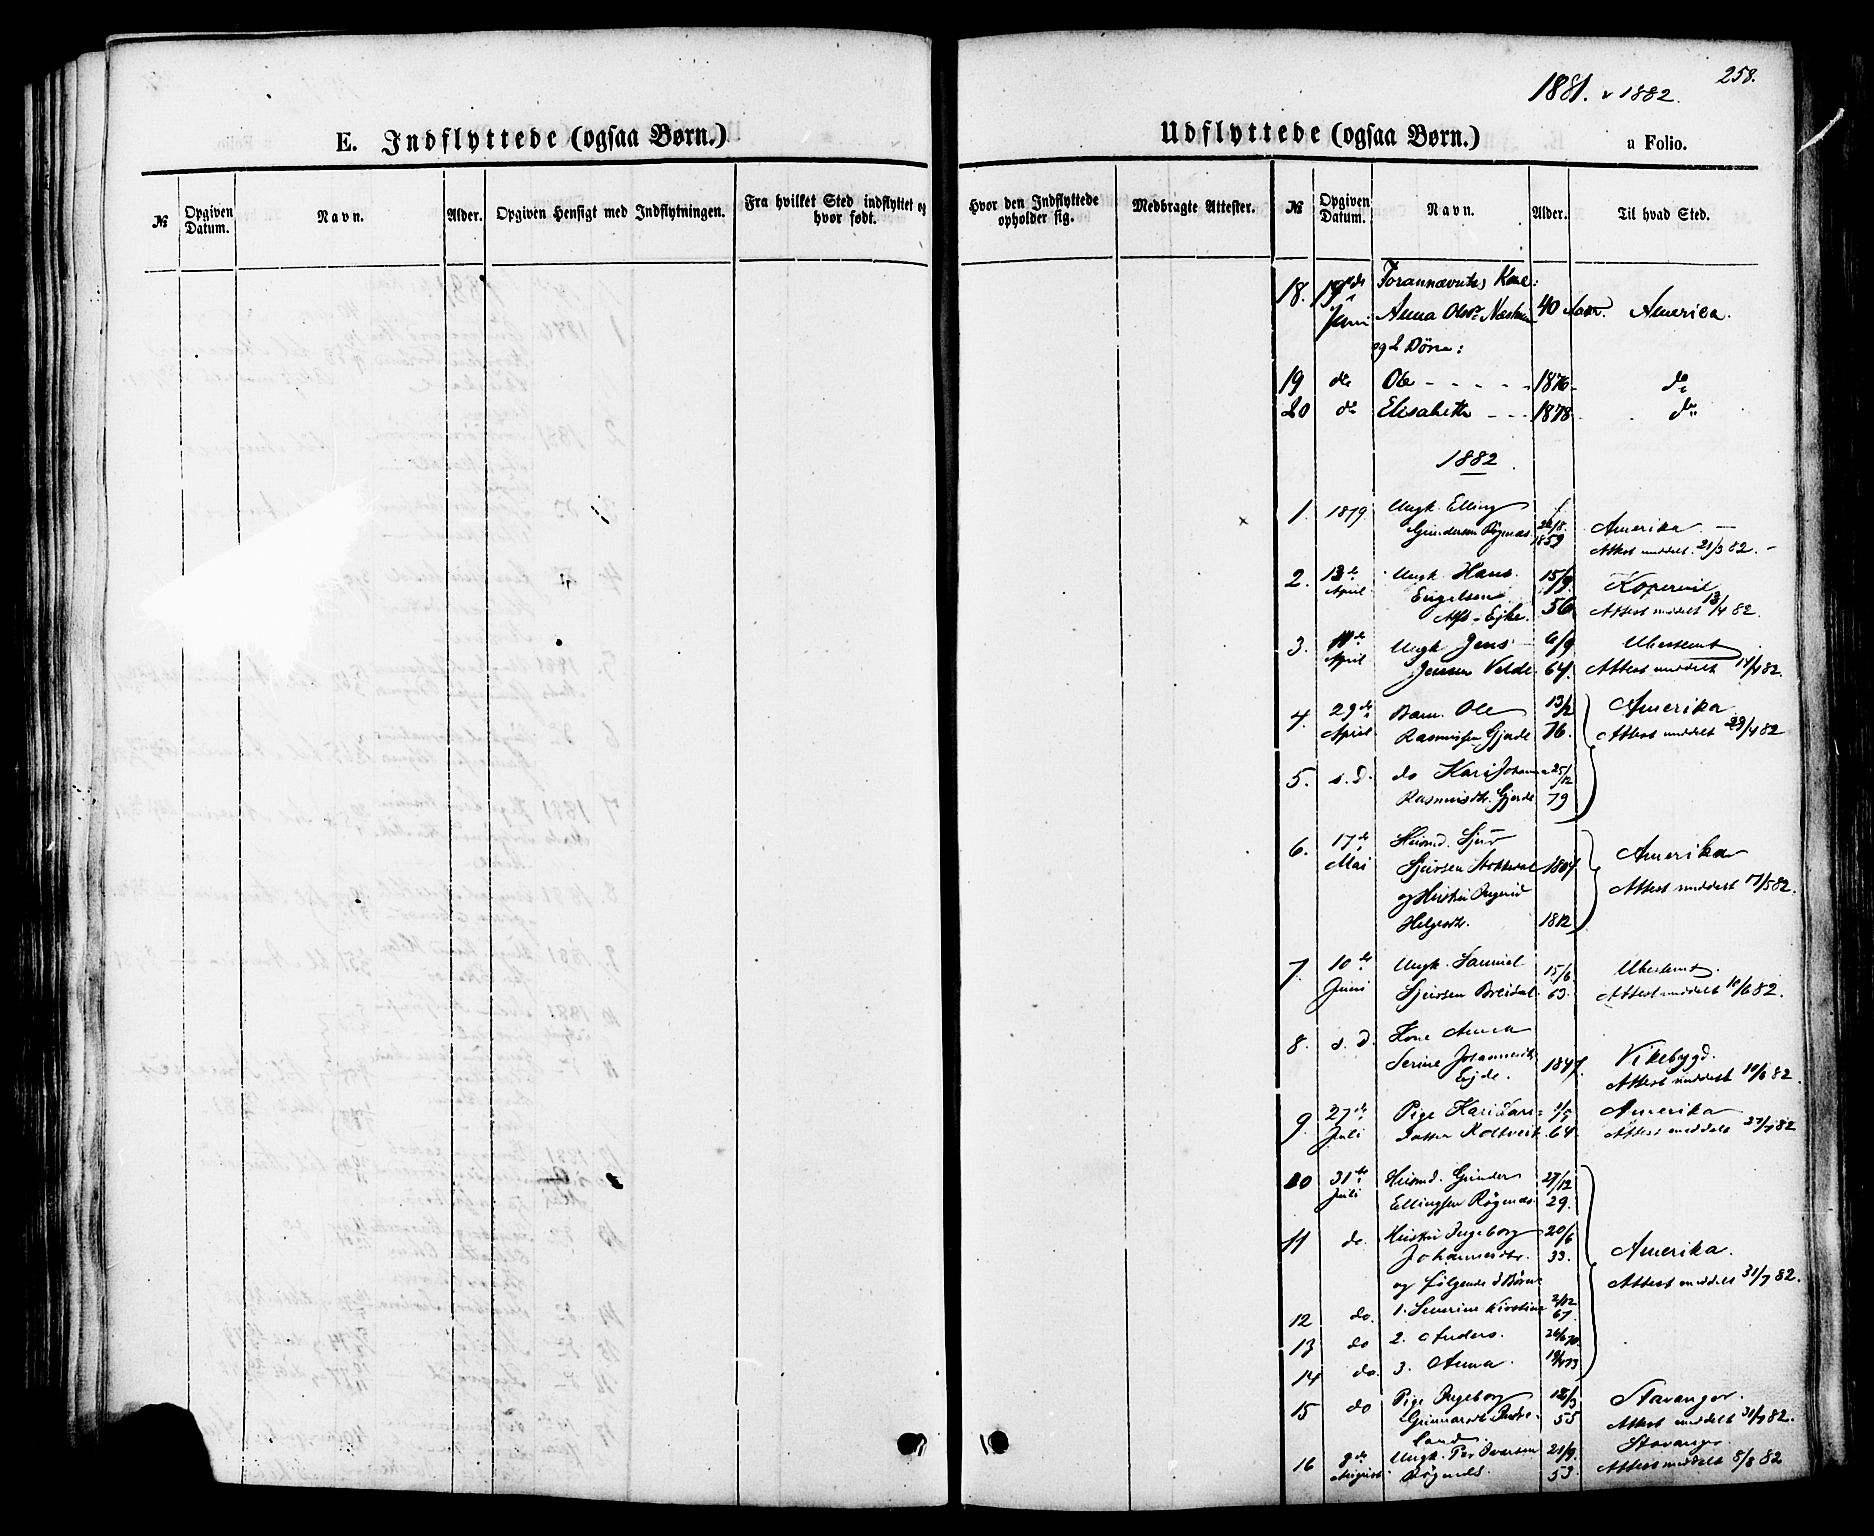 258.
1881. & 1882.
E. Indflyttede (ogsaa Børn.)
Udflyttede (ogsaa Børn.)
a Folio.
№ Opgiven Datum. Navn. Alder. Opgiven Hensigt med Indflytningen. Fra hvilket Sted indflyttet og hvor født.
Hvor den Indflyttede opholder sig. Medbragte Attester. № Opgiven Datum. Navn. Alder. Til hvad Sted.
18. 19de Forannævntes Kone:
Juni Anna Olsd. 40 Aar. Amerika.
og 2 Børn:
19 do Ole - - - - - 1876 do
20 do Elisabeth - - - 1878 do
1882
1. 1879 Ungk. Elling
Gundersen Røgnæs 22/8 1859 Amerika —
Attest meddelt 21/3 82. -
2. 13de Ungk. Hans 15/9 Kopervik
April Engelsen 56 Attest meddelt 13/4 82.
Alfs-Ejke.
3. 14de Ungk. Jens 6/9 Ubestemt
April Jensen Velde. 64. Attest meddelt 14/4 82.
4. 29de Barn. Ole 13/2 Amerika
April Rasmussen Gjerde 76. Attest meddelt 29/4 82
5. s. D. do Kari Johanna 25/12
Rasmusdtr. Gjerde 79
6. 17de Husmd. Sjur
Mai Sjursen Stokkedal 1807 Amerika
og Hustru Ingerid Attest meddelt 17/5 82.
Helgesdtr. 1812
7. 10de Ungk. Samuel 15/6 Ubestemt.
Juni Sjursen Breidal. 63. Attest meddelt 10/6 82.
8. s. D. Kone Anna
Serine Johannesdtr. 1847. Vikebygd.
Ejde. Attest meddelt 10/6 82.
9. 27de Pige Kari Lars= 1/5 Amerika
Juli datter Koltveit 64. Attest meddelt 27/7 82
10 31te Husmd. Gunder 27/12
Juli Ellingsen Røgnæs 29.
11 do. Hustru Ingeborg 20/6
Johannesdtr. 33. Amerika.
og følgende 3 Børn Attest meddelt 31/7 82.
12 do. 1. Severine Kirstine 2/12 67.
13 do 2. Anders. 26/6 70
14 do. 3. Anna.
15 do Pige Ingeborg 18/3 Stavanger.
Gunnarsdt. Indre- 55 Attest meddelt 31/7 82.
land.
16 8de Ungk. Per Iversen 21/9. Stavanger
August Røgnæs. 53. Attest meddelt 8/8 82